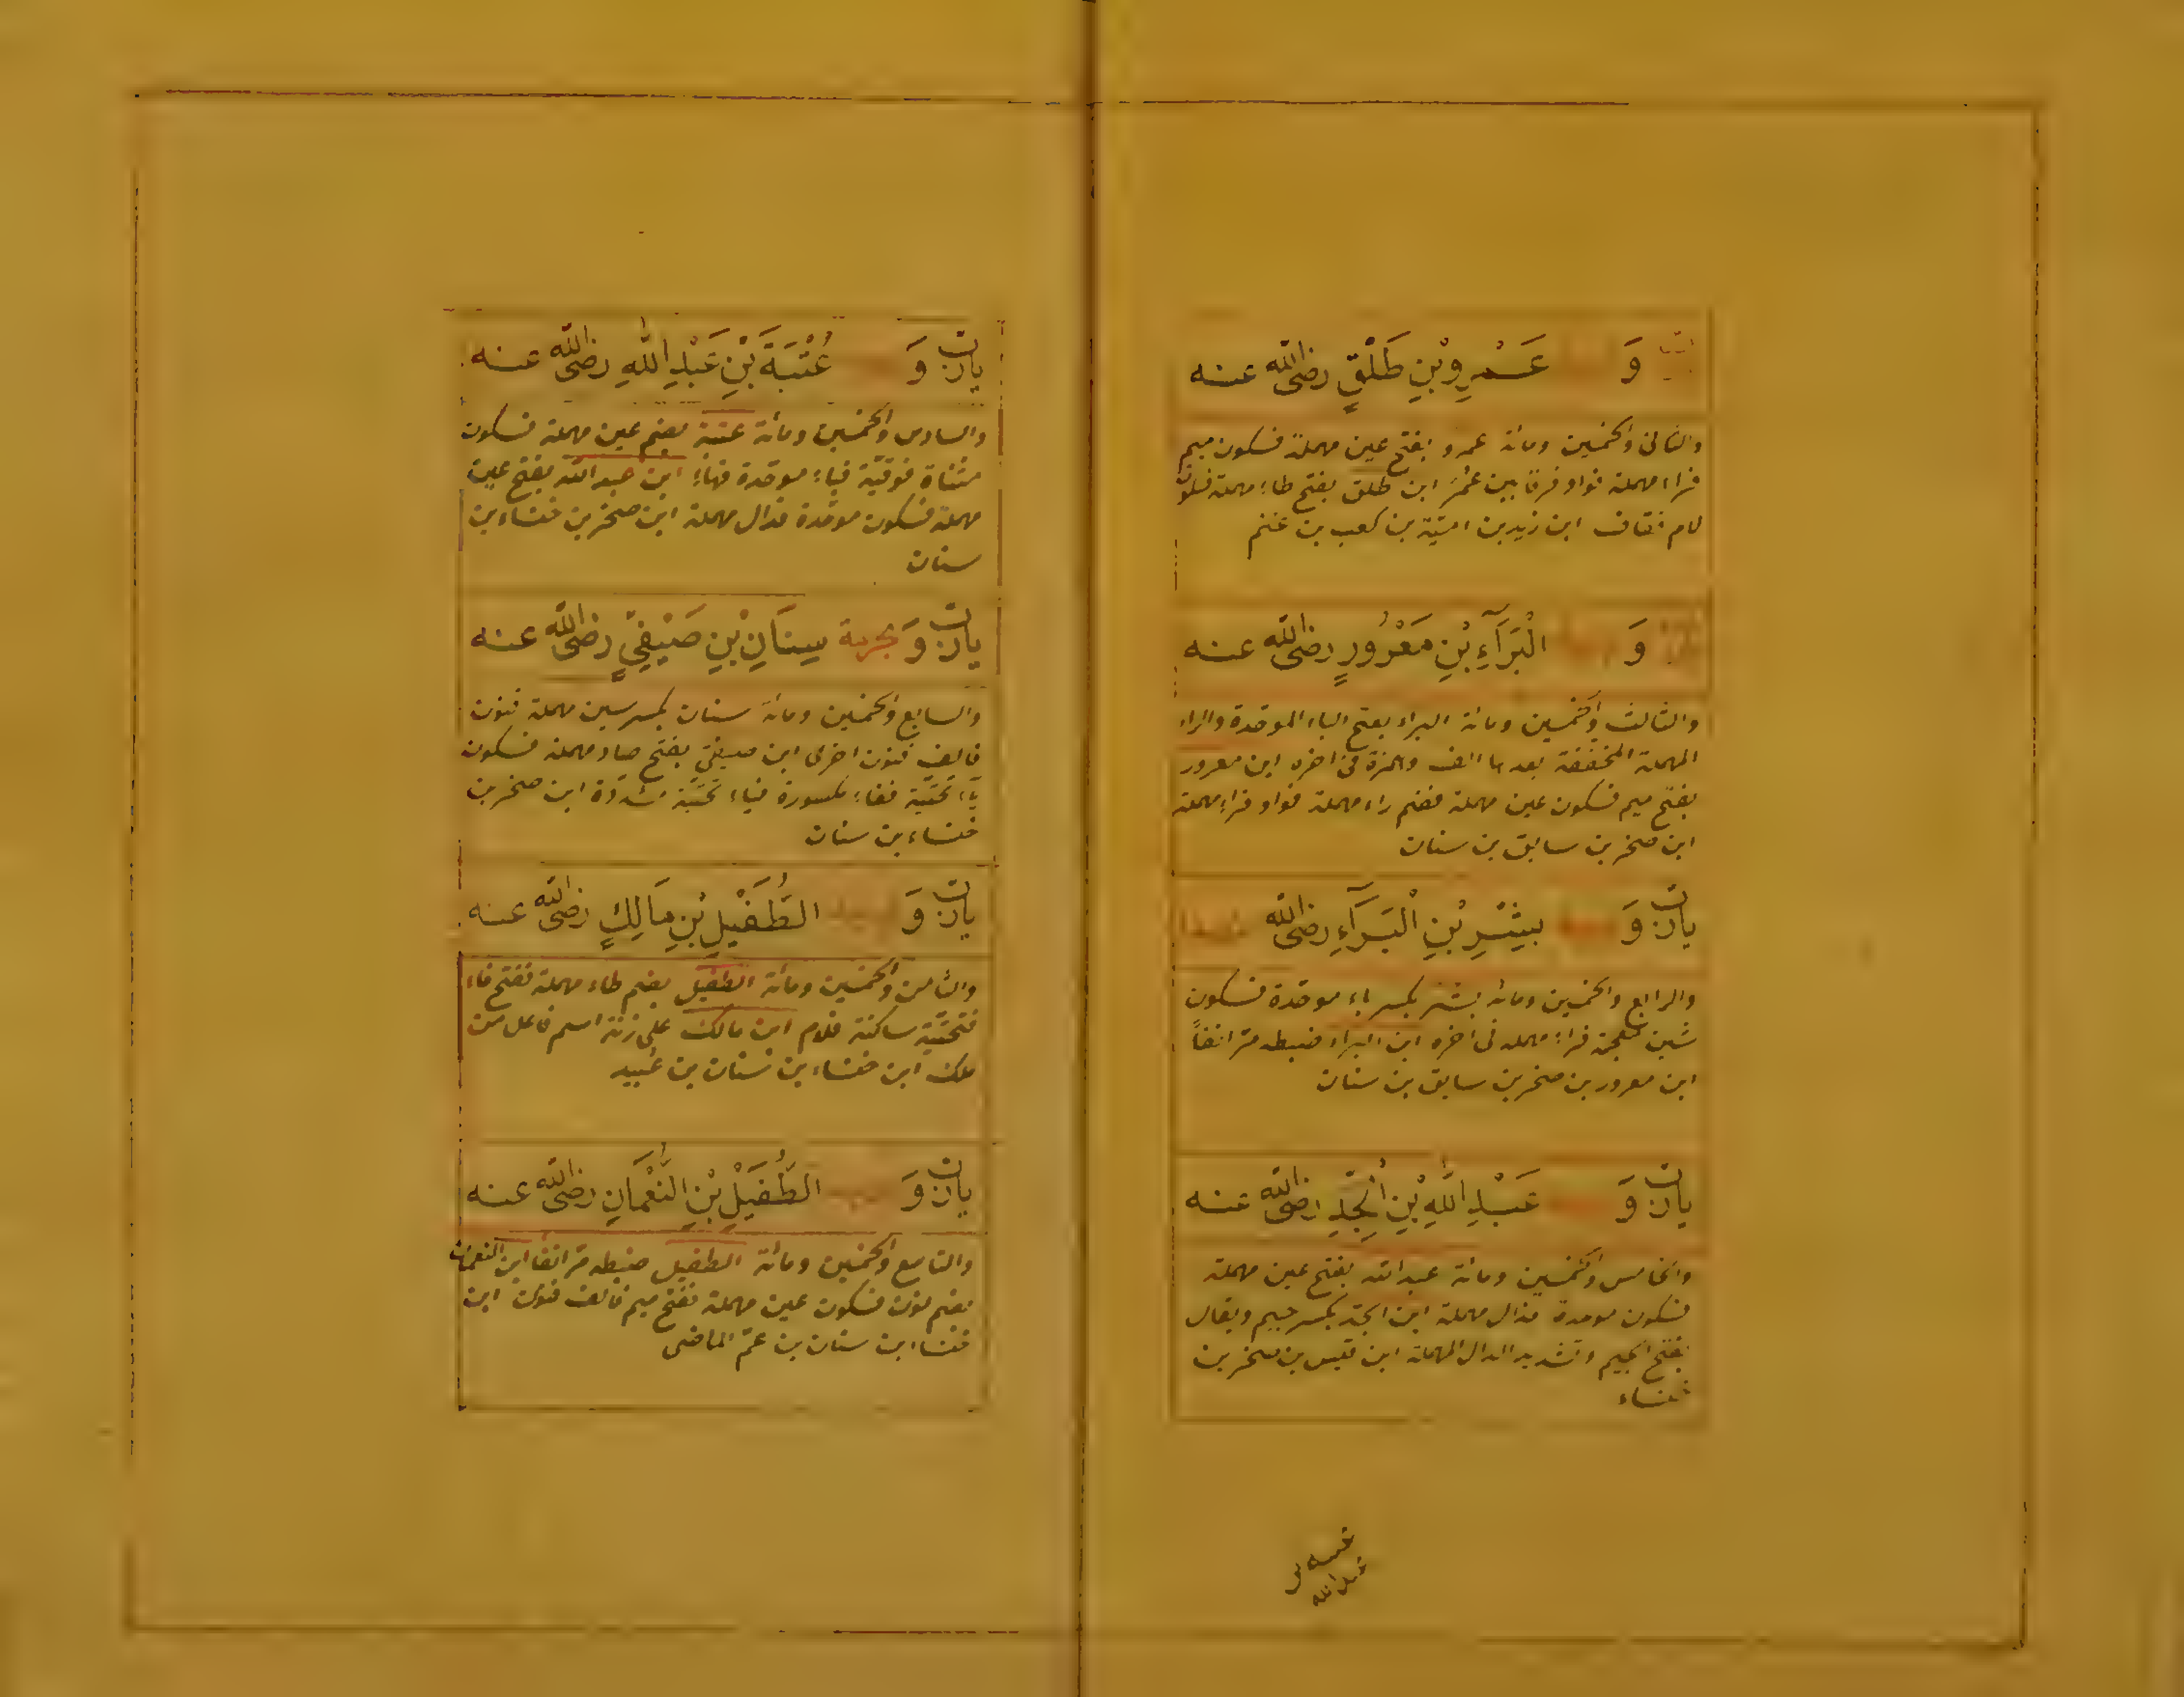 وَ عَمْرِو بْنِ طَلْقٍ رضى الله عنه
والثانى والخمسين ومائة عمرو بفتح عين مهملة فسكون ميم
فراء مهملة فواو فرقا بين عُمَرَ ابن طلق بفتح طاء مهملة فسكون
لام فقاف ابن زيد بن امية بن كعب بن غنم
وَ الْبَرَآءِ بْنِ مَعْرُورٍ رضى الله عنه
والثالث والخمسين ومائة البراء بفتح الباء الموحدة والراء
المهملة المخففة بعدها الف وهمزة فى اخره ابن معرور
بفتح ميم فسكون عين مهملة فضم راء مهملة فواو فراء مهملة
ابن صخر بن سابق بن سنان
يارب وَ بِشْرِ بْنِ الْبَرَآءِ رضى الله
والرابع والخمسين ومائة بشر بكسر باء موحدة فسكون
شين معجمة فراء مهملة فى اخره ابن البراء ضبطه مر انفاً
ابن معرور بن صخر بن سابق بن سنان
يارب وَ عَبْدِ اللهِ بْنِ الْجَدِّ رضى الله عنه
والخامس والخمسين ومائة عبد الله بفتح عين مهملة
فسكون موحدة فدال مهملة ابن الجد بكسر جيم ويقال
بفتح الجيم وتشديد الدال المهملة ابن قيس بن صخر بن
خنساء
عتبه بن
عبد الله
يارب وَ عُتْبَةَ بْنِ عَبْدِ اللهِ رضى الله عنه
والسادس والخمسين ومائة عتبة بضم عين مهملة فسكون
مثناة فوقية فباء موحدة فهاء ابن عبد الله بفتح عين
مهملة فسكون موحدة فدال مهملة ابن صخر بن خنساء بن
سنان
يارب وَ بحرمة سِنَانِ بْنِ صَيْفِيٍّ رضى الله عنه
والسابع والخمسين ومائة سنان بكسر سين مهملة فنون
فالف فنون اخرى ابن صيفي بفتح صاد مهملة فسكون
ياء تحتية ففاء مكسورة فياء تحتية مشددة ابن صخر بن
خنساء بن سنان
يارب وَ الطُّفَيْلِ بْنِ مَالِكٍ رضى الله عنه
والثامن والخمسين ومائة الطفيل بضم طاء مهملة ففتح فاء
فتحتية ساكنة فلام ابن مالك على زنة اسم فاعل من
ملك ابن خنساء بن سنان بن عُبيد
يارب وَ الطُّفَيْلِ بْنِ النُّعْمَانِ رضى الله عنه
والتاسع والخمسين ومائة الطفيل ضبطه مر انفا ابن النعمان
بضم نون فسكون عين مهملة ففتح ميم فالف فنون ابن
خنساء ابن سنان بن عم الماضى